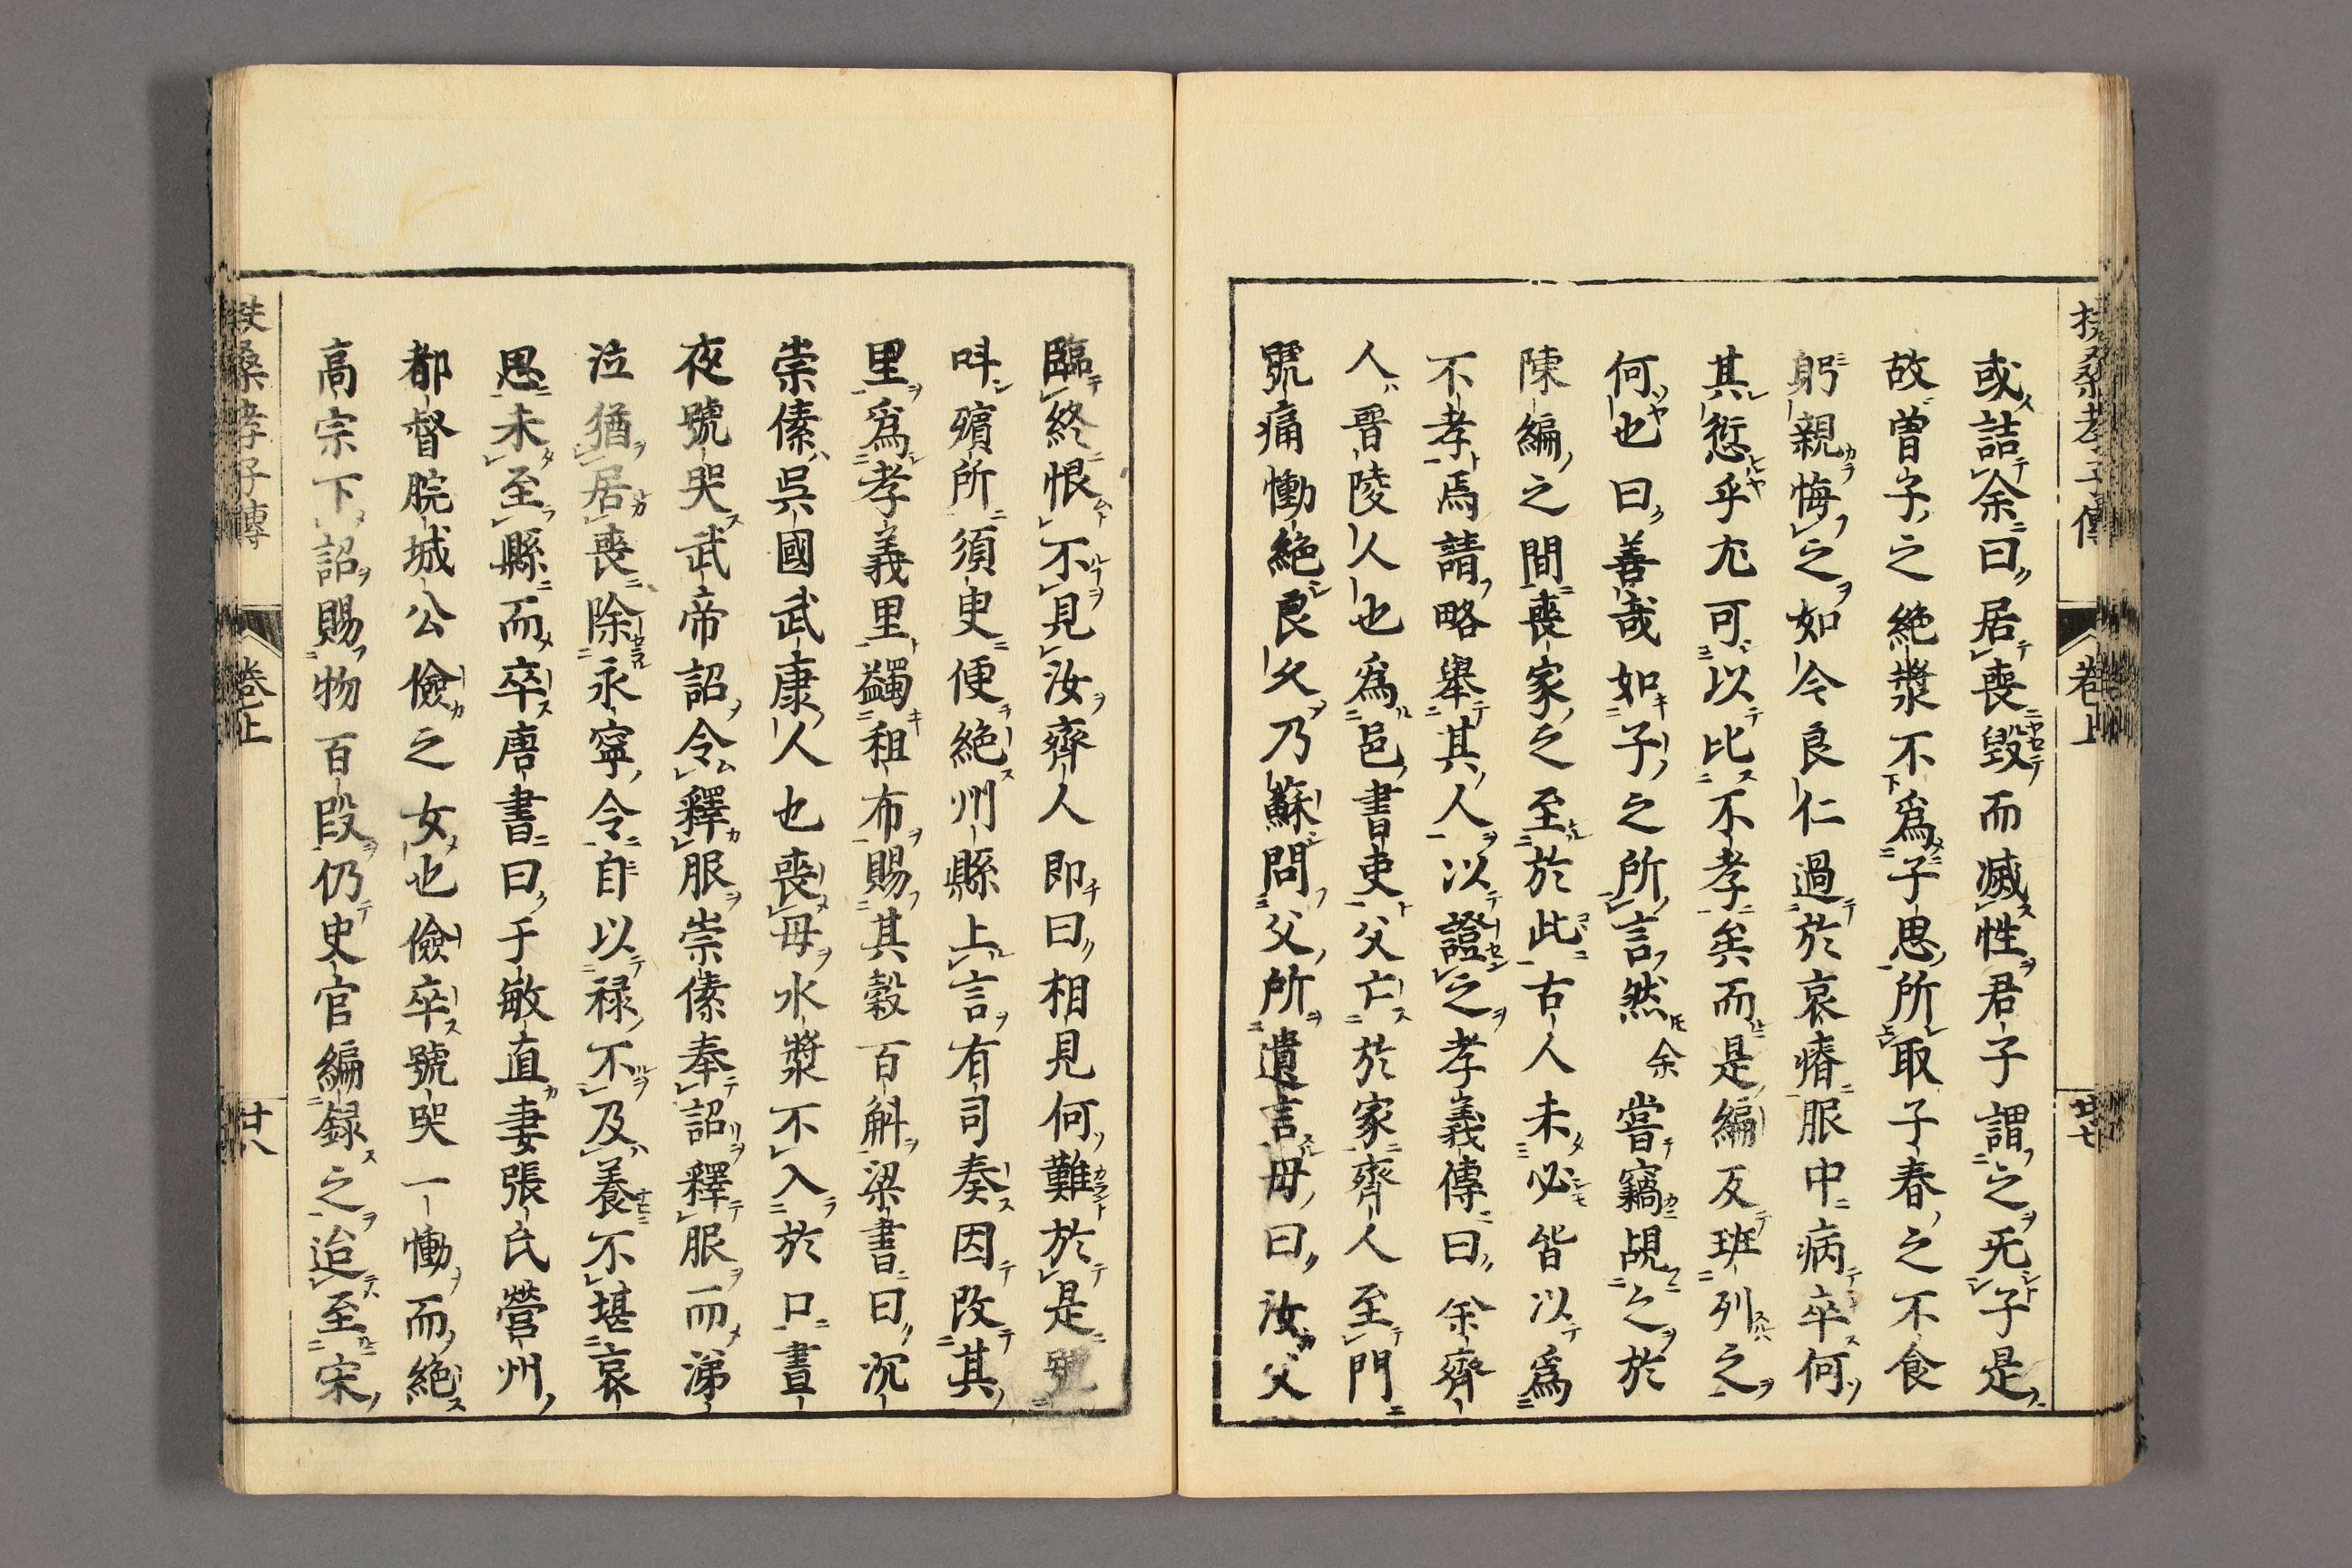 扶桑孝子傳 卷上 廿七
或詰余曰居喪毀而滅性君子謂之旡子是
故曾子之絶漿不爲子思所取子春之不食
躬親悔之如今良仁過於哀瘠服中病卒何
其愆乎尤可以比不孝矣而是編反班列之
何也曰善哉如子之所言然余嘗竊覘之於
陳編之間喪家之至於此古人未必皆以爲
不孝焉請略舉其人以證之孝義傳曰余齊
人晉陵人也爲邑書吏父亡於家齊人至門
號痛慟絶良久乃蘇問父所遺言母曰汝父
臨終恨不見汝齊人即曰相見何難於是號
呌殯所須臾便絶州縣上言有司奏因改其
里爲孝義里蠲租布賜其穀百斛梁書曰沉
崇傃呉國武康人也喪母水漿不入於口晝
夜號哭武帝詔令釋服崇傃奉詔釋服而涕
泣猶居喪除永寧令自以祿不及養不堪哀
思未至縣而卒唐書曰于敏直妻張氏營州
都督脘城公儉之女也儉卒號哭一慟而絶
高宗下詔賜物百段仍史官編録之迨至宋
扶桑孝子傳 卷上 廿八